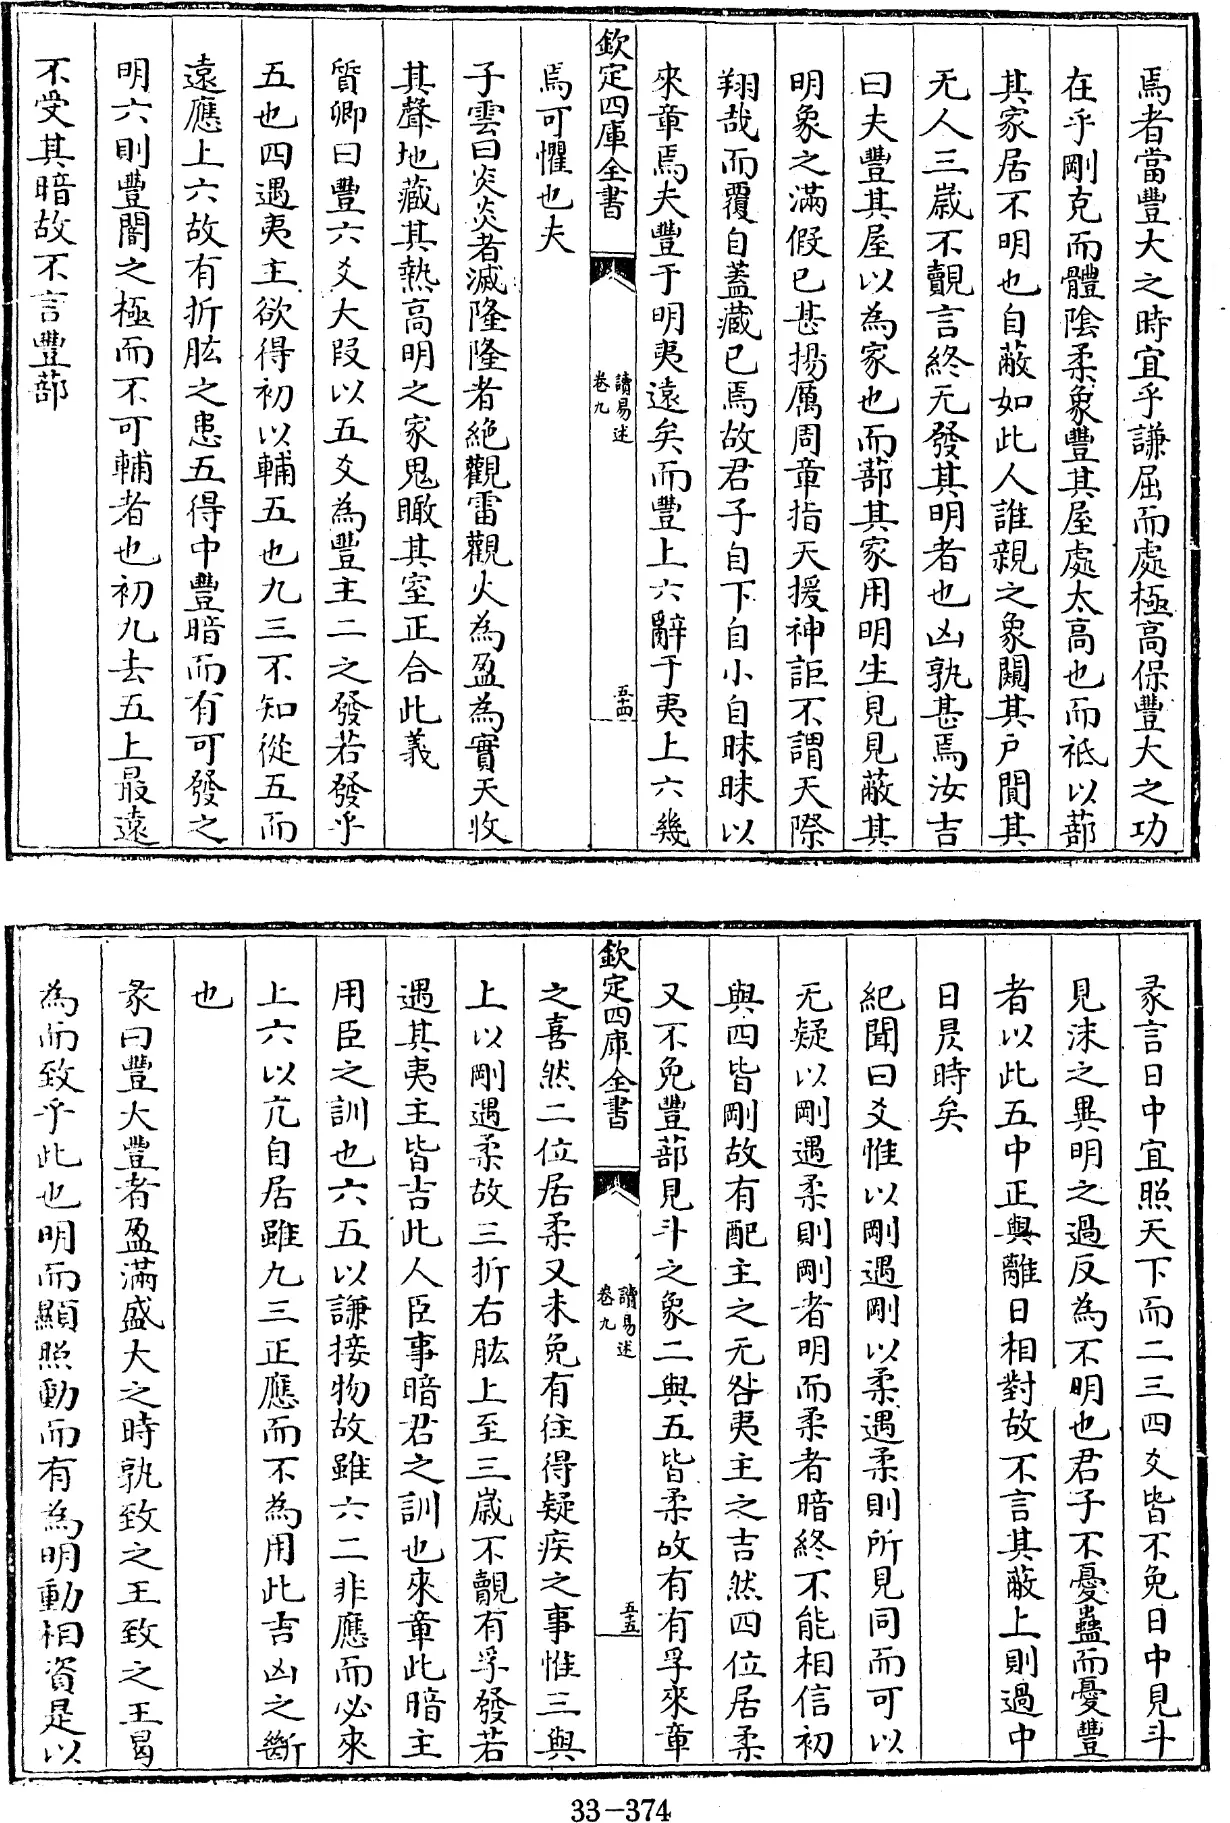 焉者當豐大之時宜乎謙屈而處極高保豐大之功
在乎剛克而體陰柔象豐其屋處太高也而祗以蔀
其家居不明也自蔽如此人誰親之象闚其戶閴其
无人三嵗不覿言終无發其明者也凶孰甚焉汝吉
曰夫豐其屋以為家也而蔀其家用明生見見蔽其
明象之滿假已甚揚厲周章指天援神詎不謂天際
翔哉而覆自蓋藏已焉故君子自下自小自昧昧以
來章焉夫豐于明夷遠矣而豐上六辭于夷上六幾
欽定四庫全書
讀易述
卷九
五十四
焉可懼也夫
子雲曰炎炎者滅隆隆者絶觀雷觀火為盈為實天收
其聲地藏其熱高明之家鬼瞰其室正合此義
質卿曰豐六爻大叚以五爻為豐主二之發若發乎
五也四遇夷主欲得初以輔五也九三不知從五而
遠應上六故有折肱之患五得中豐暗而有可發之
明六則豐闇之極而不可輔者也初九去五上最遠
不受其暗故不言豐蔀
彖言日中宜照天下而二三四爻皆不免日中見斗
見沬之異明之過反為不明也君子不憂蠱而憂豐
者以此五中正與離日相對故不言其蔽上則過中
日昃時矣
紀聞曰爻惟以剛遇剛以柔遇柔則所見同而可以
无疑以剛遇柔則剛者明而柔者暗終不能相信初
與四皆剛故有配主之无咎夷主之吉然四位居柔
又不免豐蔀見斗之象二與五皆柔故有有孚來章
欽定四庫全書
讀易述
卷九
五十五
之喜然二位居柔又未免有徃得疑疾之事惟三與
上以剛遇柔故三折右肱上至三嵗不覿有孚發若
遇其夷主皆吉此人臣事暗君之訓也來章此暗主
用臣之訓也六五以謙接物故雖六二非應而必來
上六以亢自居雖九三正應而不為用此吉凶之斷
也
彖曰豐大豐者盈滿盛大之時孰致之王致之王曷
為而致乎此也明而顯照動而有為明動相資是以
33-374